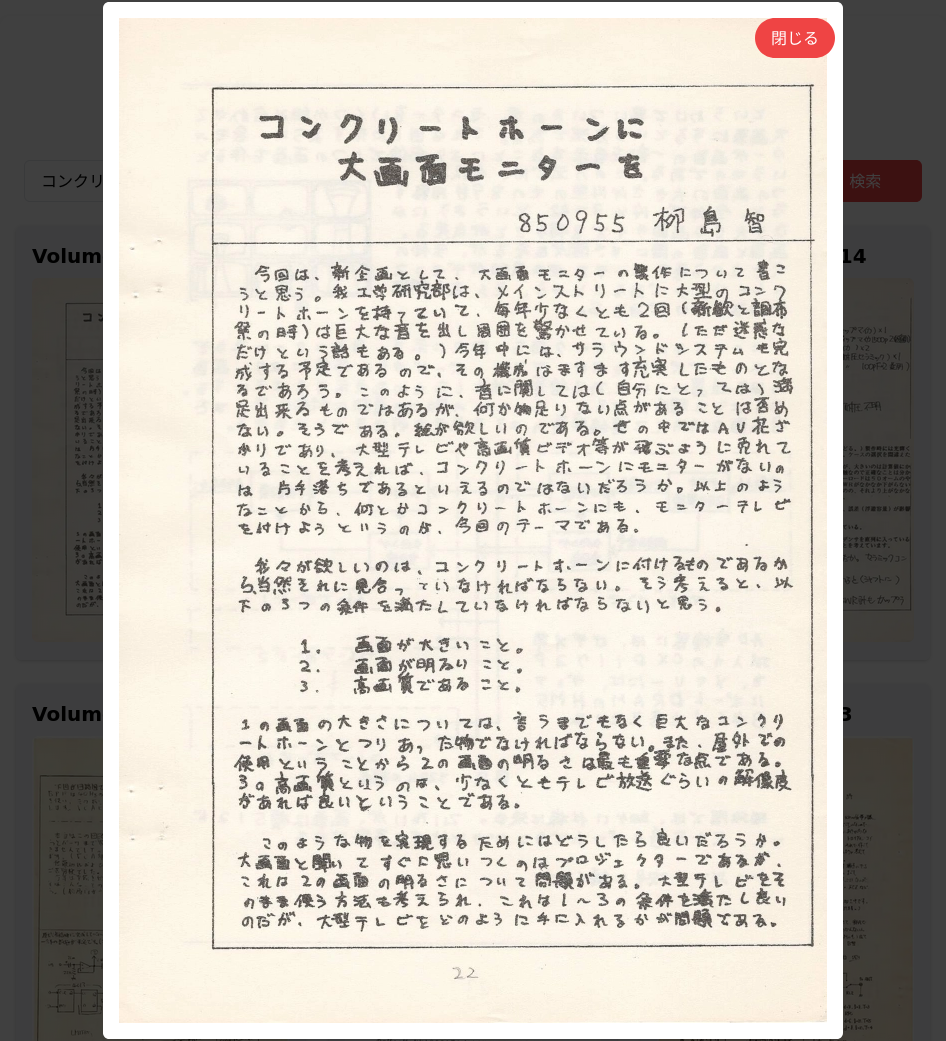 閉じる
コンクリ
検索
Volum
14
Volum
3
コンクリートホーンに
大画面モニターを
850955 柳島 智
今回は、新企画として、大画面モニターの製作について書こ
うと思う。我工学研究部は、メインストリートに大型のコンク
リートホーンを持っていて、毎年少なくとも2回(新歓と調布
祭の時)は巨大な音を出し周囲を驚かせている。(ただ迷惑な
だけという話もある。)今年中には、サラウンドシステムも完
成する予定であるので、その構成はますます充実したものとな
るであろう。このように、音に関しては(自分にとっては)満
足出来るものではあるが、何か物足りない点があることは否め
ない。そうである。絵が欲しいのである。世の中ではAV花ざ
かりであり、大型テレビや高画質ビデオ等が確ぶように売れて
いることを考えれば、コンクリートホーンにモニターがないの
は、片手落ちであるといえるのではないだろうか。以上のよう
なことから、何とかコンクリートホーンにも、モニターテレビ
を付けようというのが、今回のテーマである。
我々が欲しいのは、コンクリートホーンに付けるものであるか
ら当然それに見合っていなければならない。そう考えると、以
下の3つの条件を満たしていなければならないと思う。
1. 画面が大きいこと。
2. 画面が明るいこと。
3. 高画質であること。
1の画面の大きさについては、言うまでもなく巨大なコンクリ
ートホーンとつりあった物でなければならない。また、屋外での
使用ということから2の画面の明るさは最も重要な点である。
3の高画質というのは、少なくともテレビ放送ぐらいの解像度
があれば良いということである。
このような物を実現するためにはどうしたら良いだろうか。
大画面と聞いてすぐに思いつくのはプロジェクターであるが、
これは2の画面の明るさについて問題がある。大型テレビをそ
のまま使う方法も考えられ、これは1〜3の条件を満たし良い
のだが、大型テレビをどのように手に入れるかが問題である。
22